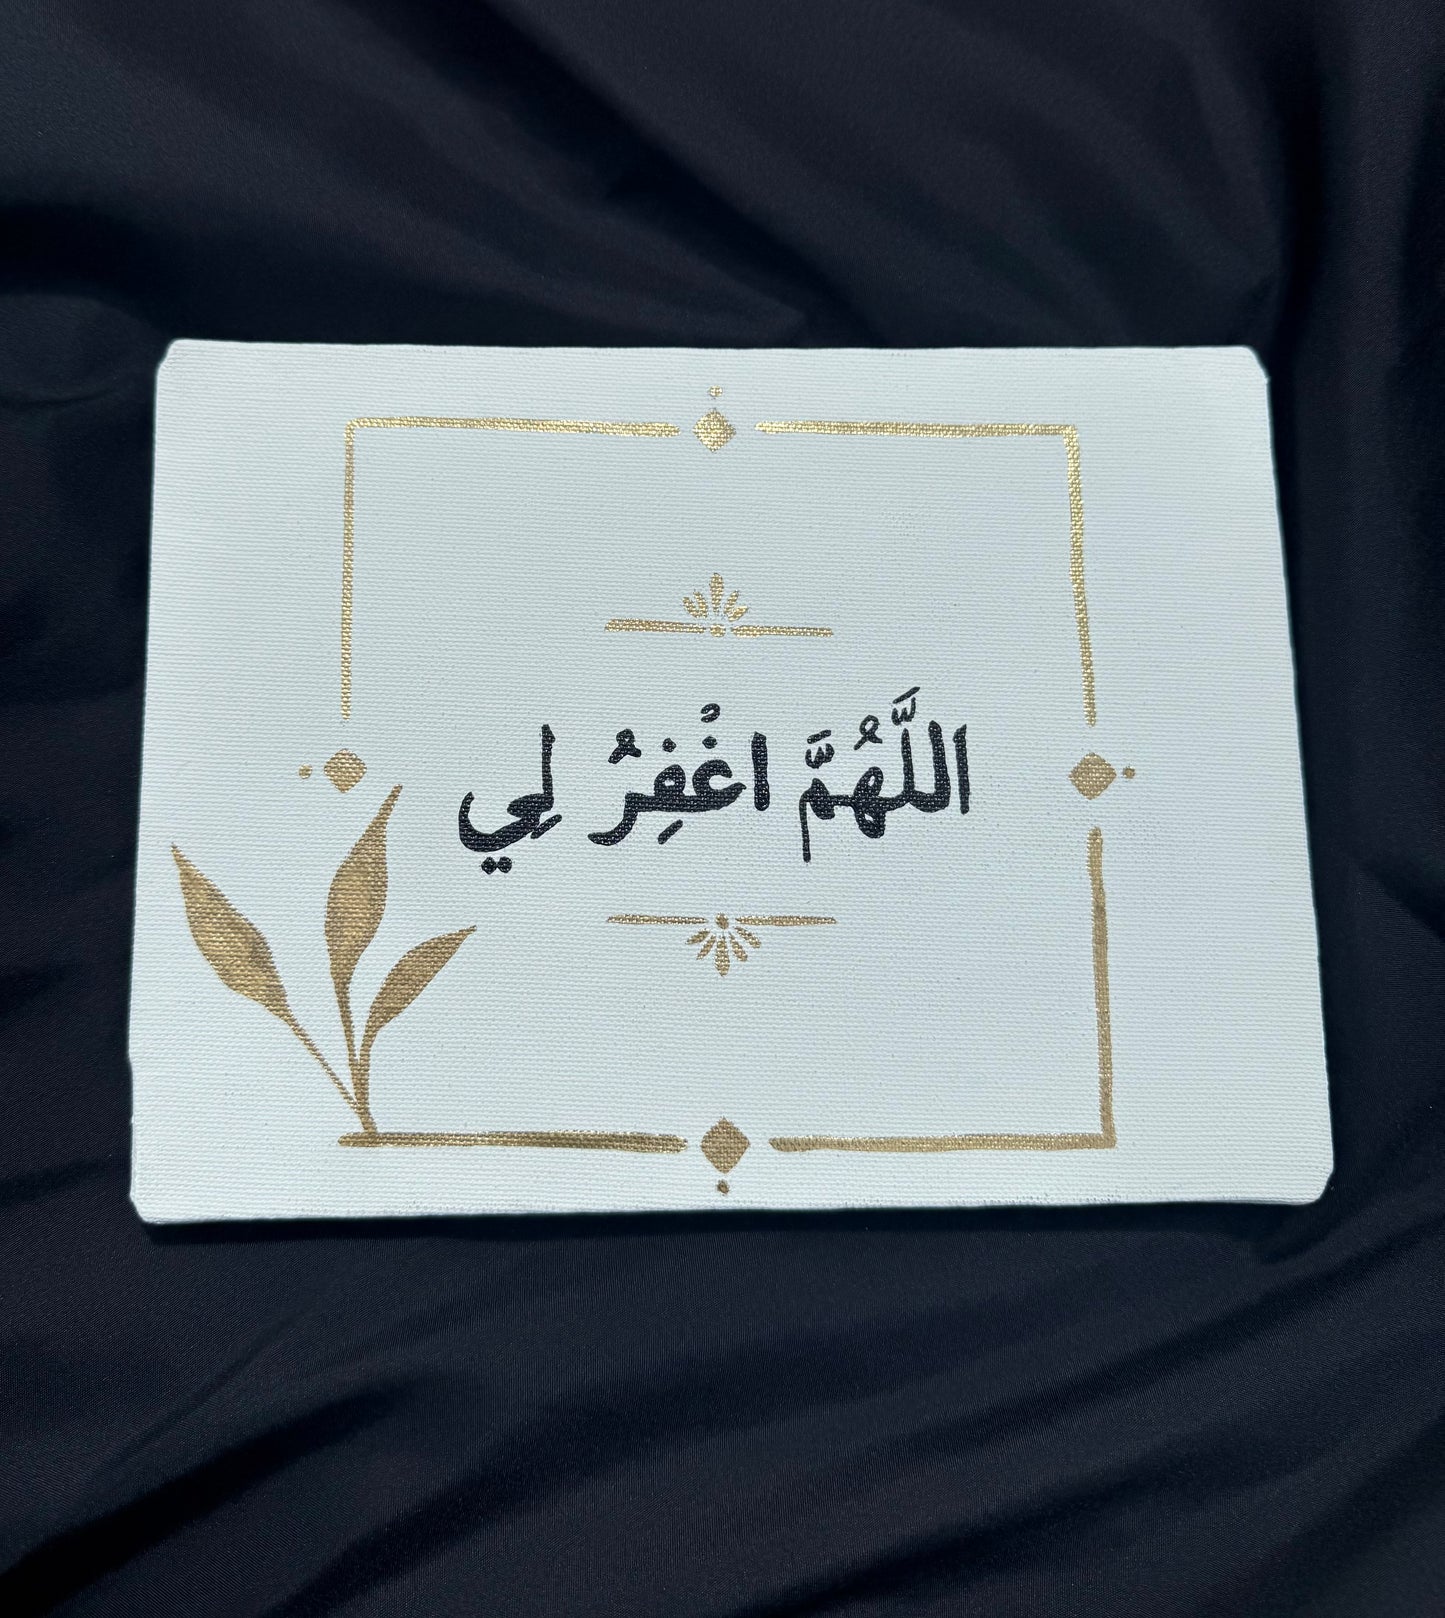 اللَّهُمَّ اغْفِرُ لِي